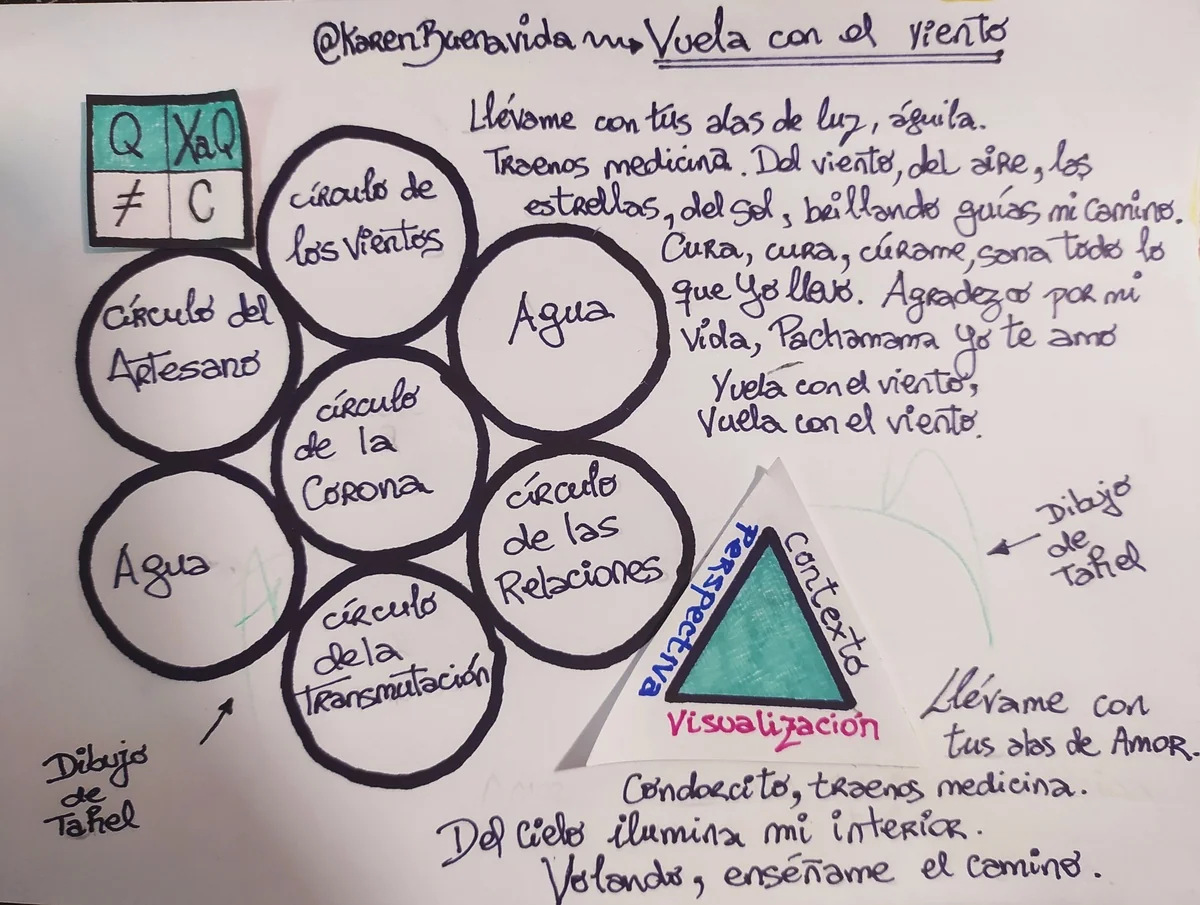 @KarenBuenavida Vuela con el viento
Q XaQ
≠ C
círculo de
los Vientos
círculo del
Artesano
Agua
círculo
de la
Corona
Agua
círculo
de las
Relaciones
círculo
de la
Transmutación
Llévame con tus alas de luz, águila.
Traenos medicina. Del viento, del aire, los
estrellas, del sol, brillando guías mi camino.
Cura, cura, cúrame, sana todo lo
que yo llevo. Agradezco por mi
vida, Pachamama yo te amo
Yuela con el viento,
Vuela con el viento.
Perspectiva
Contexto
Visualización
Dibujo
de
Tahel
Dibujo
de
Tahel
Llévame con
tus alas de Amor.
Condorcito, traenos medicina.
Del cielo ilumina mi interior.
Volando, enséñame el camino.